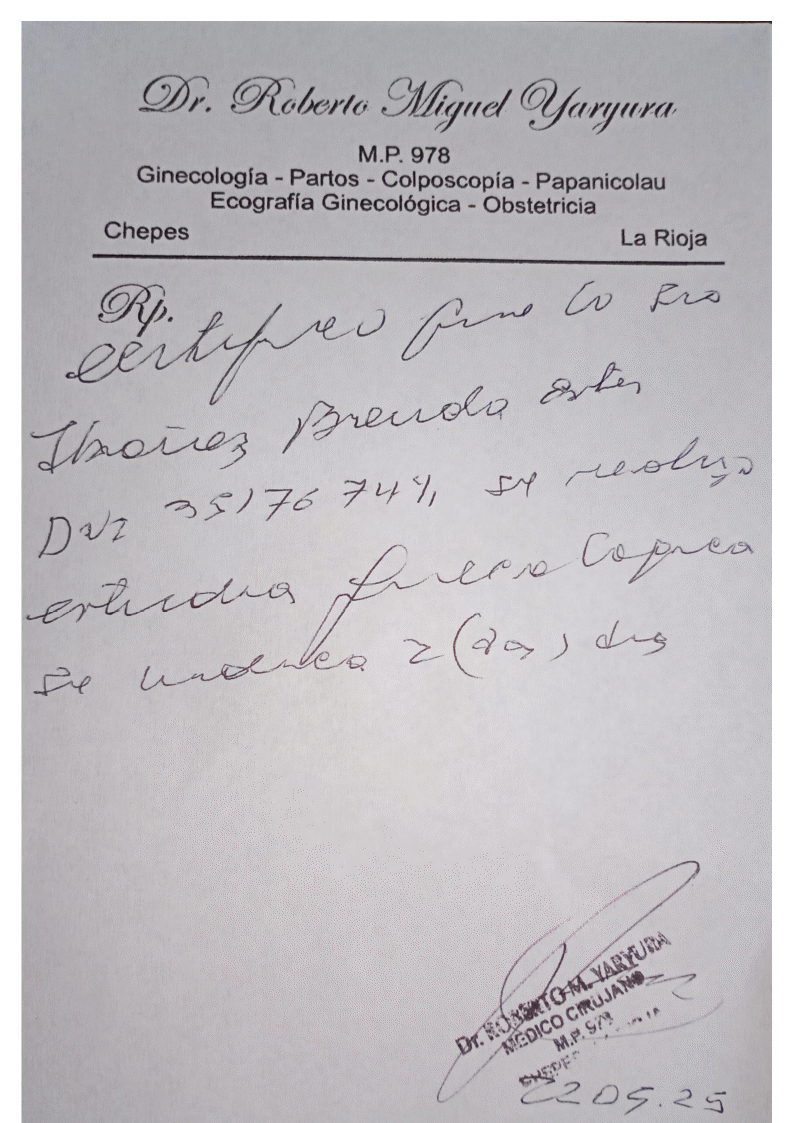 Dr. Roberto Miguel Yaryura
M.P. 978
Ginecología - Partos - Colposcopía - Papanicolau
Ecografía Ginecológica - Obstetricia
Chepes La Rioja
Rp.
Certifico que la Sra
Ibañez Brenda Ester
DNI 35176 744, se realizo
estudio ginecologico
se indica 2 (dos) dias
Dr. ROBERTO M. YARYURA
MEDICO CIRUJANO
M.P. 978
CHEPES
22 05.25